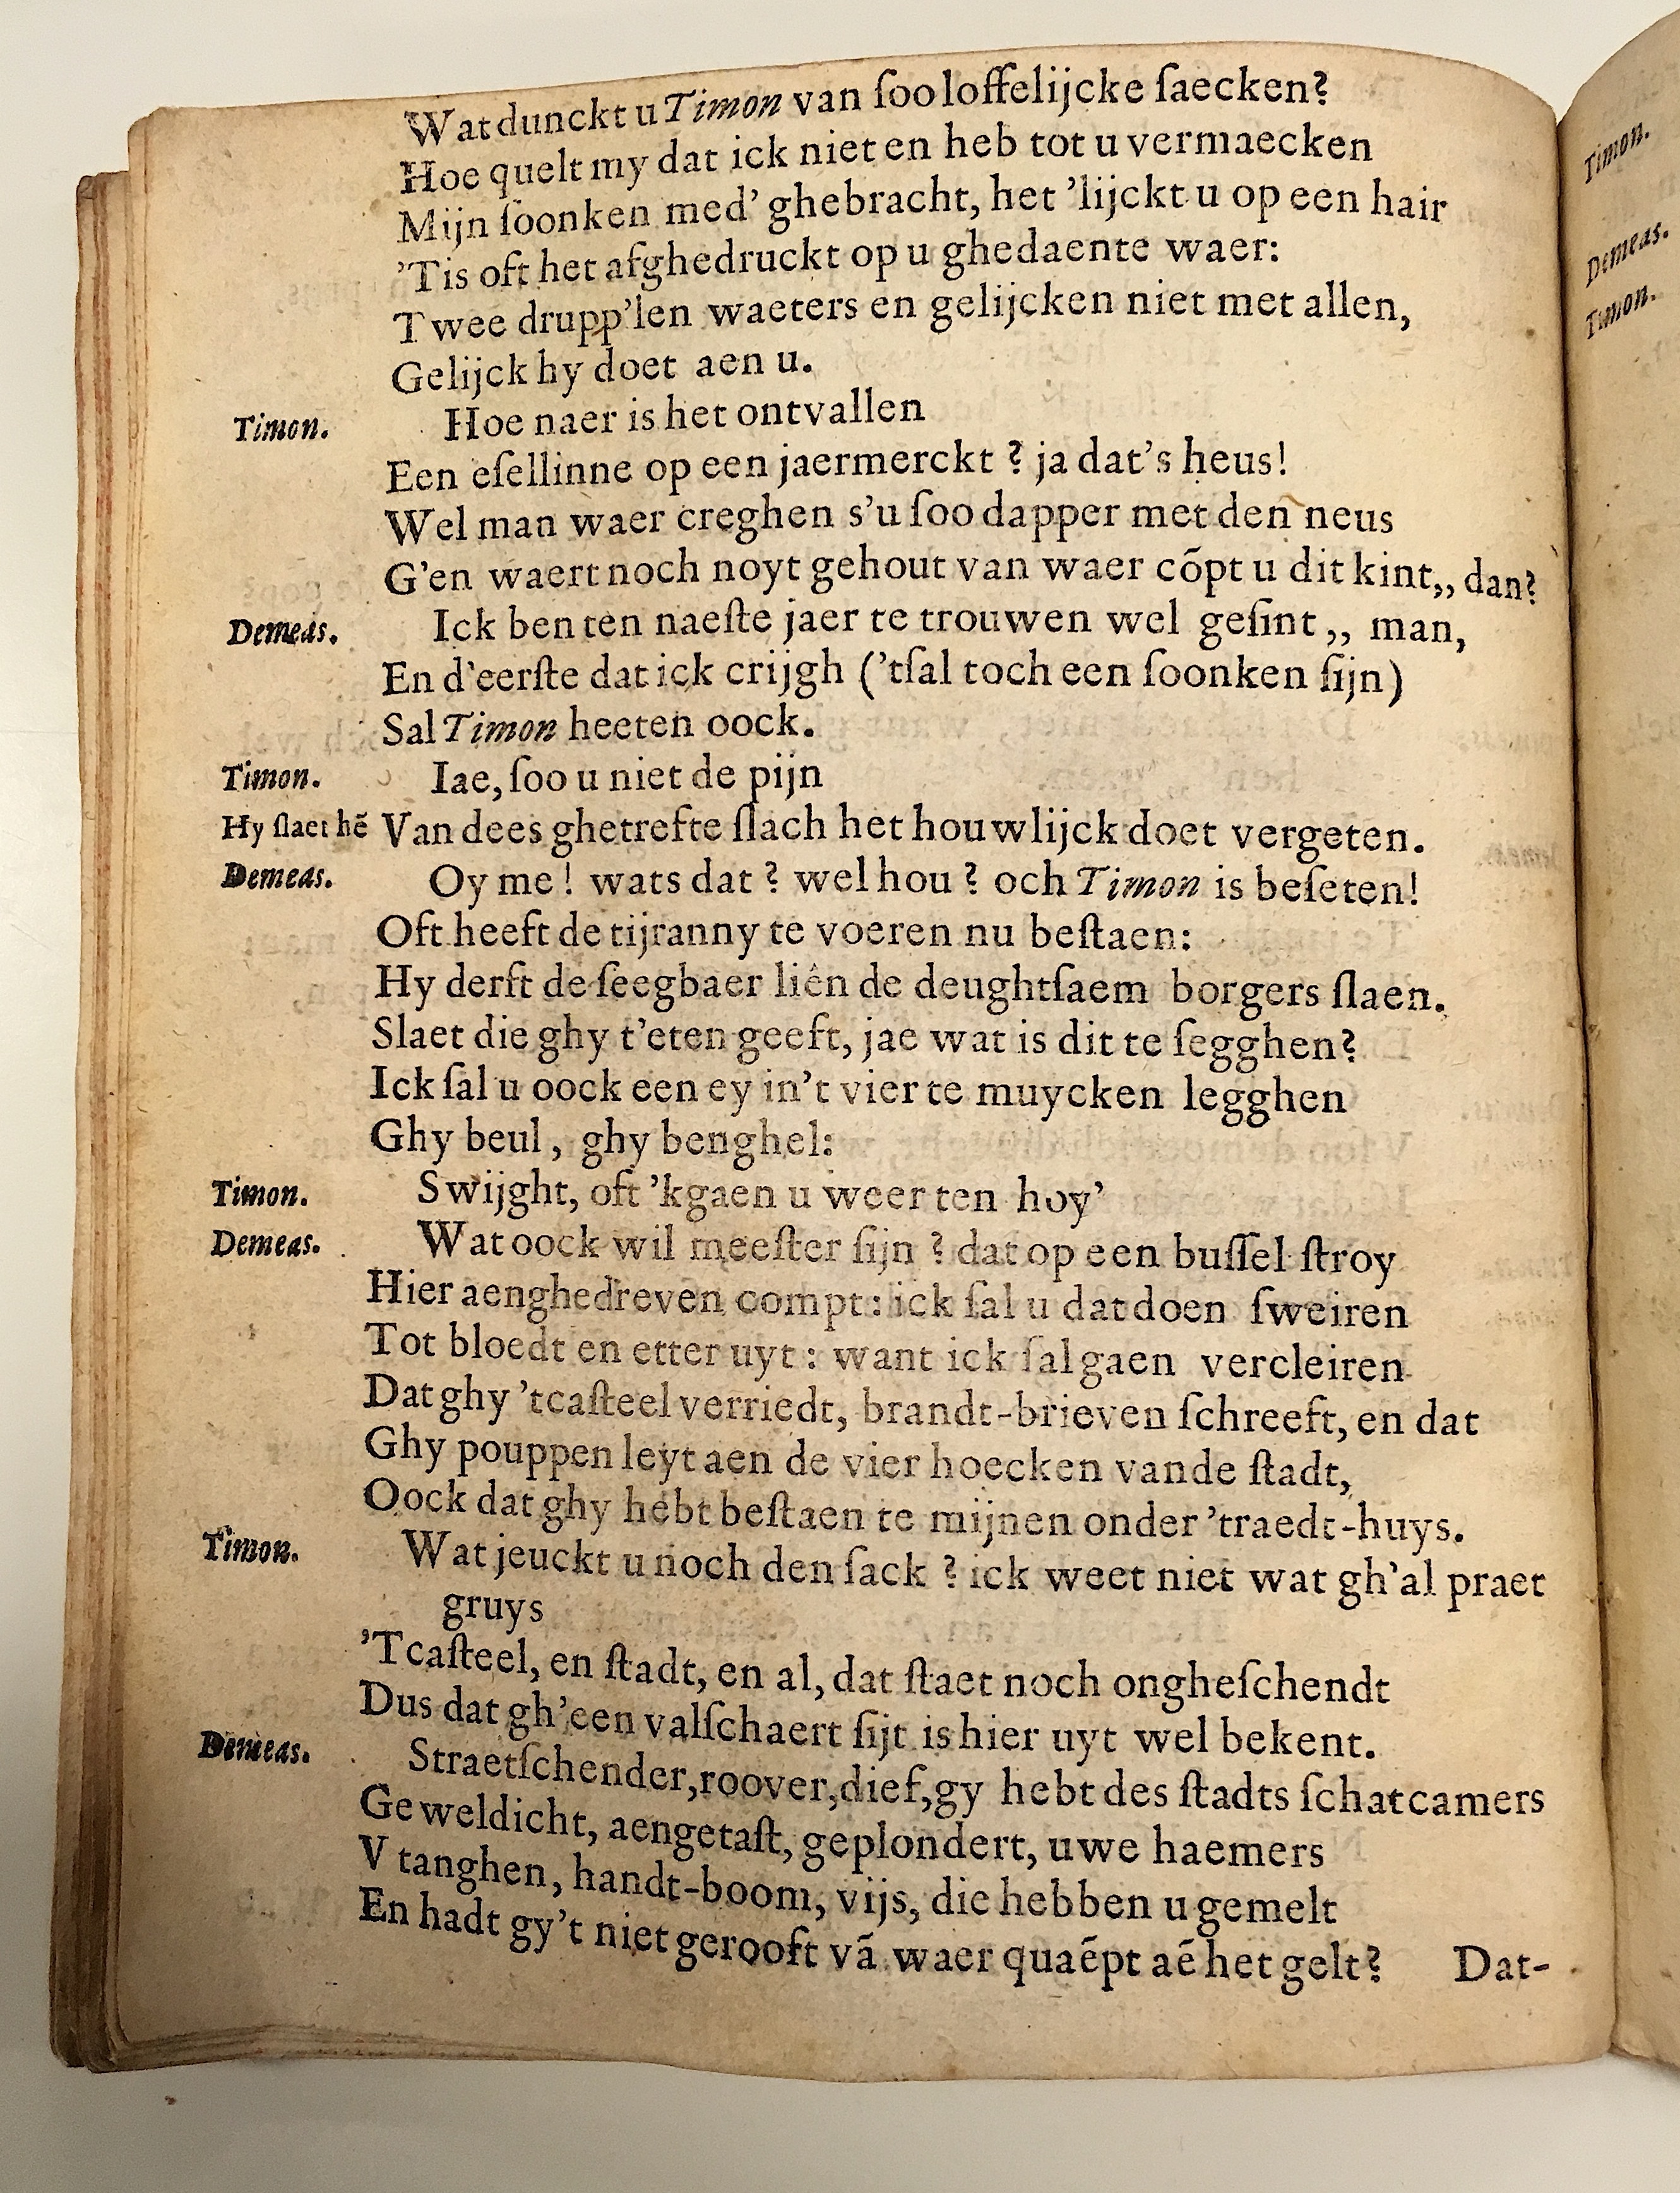 Wat dunckt u Timon van ſoo loffelijcke ſaecken?
Hoe quelt my dat ick niet en heb tot u vermaecken
Mijn ſoonken med' ghebracht, het 'lijckt u op een hair
'Tis oft het afghedruckt op u ghedaente waer:
Twee drupp'len waeters en gelijcken niet met allen,
Gelijck hy doet aen u.
Timon. Hoe naer is het ontvallen
Een eſellinne op een jaermerckt ? ja dat's heus!
Wel man waer creghen s'u ſoo dapper met den neus
G'en waert noch noyt gehout van waer cõpt u dit kint,, dan?
Demeas. Ick ben ten naeſte jaer te trouwen wel geſint ,, man,
En d'eerſte dat ick crijgh ('tſal toch een ſoonken ſijn)
Sal Timon heeten oock.
Timon. Iae, ſoo u niet de pijn
Hy ſlaet hẽ Van dees ghetrefte ſlach het houwlijck doet vergeten.
Demeas. Oy me ! wats dat ? wel hou ? och Timon is beſeten!
Oft heeft de tijranny te voeren nu beſtaen:
Hy derft de ſeegbaer liên de deughtſaem borgers ſlaen.
Slaet die ghy t'eten geeft, jae wat is dit te ſegghen?
Ick ſal u oock een ey in't vier te muycken legghen
Ghy beul, ghy benghel:
Timon. Swijght, oft 'kgaen u weer ten hoy'
Demeas. Wat oock wil meeſter ſijn ? dat op een buſſel ſtroy
Hier aenghedreven compt: ick ſal u dat doen ſweiren
Tot bloedt en etter uyt : want ick ſal gaen vercleiren
Dat ghy 'tcaſteel verriedt, brandt-brieven ſchreeft, en dat
Ghy pouppen leyt aen de vier hoecken vande ſtadt,
Oock dat ghy hebt beſtaen te mijnen onder 'traedt-huys.
Timon. Wat jeuckt u noch den ſack ? ick weet niet wat gh'al praet
gruys
'Tcaſteel, en ſtadt, en al, dat ſtaet noch ongheſchendt
Dus dat gh'een valſchaert ſijt is hier uyt wel bekent.
Demeas. Straetſchender, roover, dief, gy hebt des ſtadts ſchatcamers
Geweldicht, aengetaſt, geplondert, uwe haemers
V tanghen, handt-boom, vijs, die hebben u gemelt
En hadt gy't niet gerooft vã waer quaẽpt aẽ het gelt?
Dat-
Timon.
Demeas.
Timon.